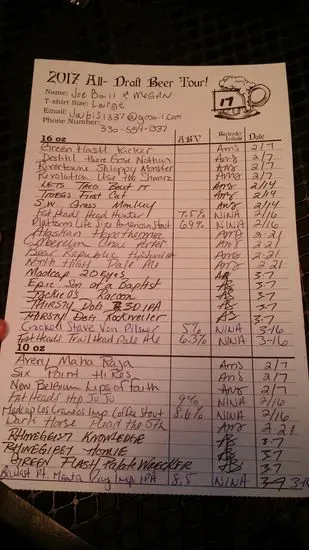 2017 All- Draft Beer Tour!
17
Name: Joe Ball & Megan
T-shirt Size: Large
Email: @gmail.com
Phone Number:
330-554-1337
16 oz ABV Bartender Initials Date
Green Flash Kicker Ams 2/7
Destihl there Goes Nathan Amy 2/7
Rivertowne Shloppy Monster Amy 2/7
Revolution Use the Shwarz Amy 2/7
LETS TACO BOUT IT Amy 2/14
Toppers First Cut Amy 2/14
S.W. Grass Monkey Amy 2/14
Fat Heads Head Hunter 7.5% NINA 2/16
Platform Life Size American Stout 6.9% NINA 2/16
Alaskan Amy 2-21
Amy 2 21
Bear Republic Amy 2-21
North High Pale Ale Amy 2-21
Madcap 20 Eyes AB 3-7
Epic Son of a Baptist AB 3-7
Jackie O's Racoon AB 3-7
THIRSTY DOG IPA AB 3-7
THIRSTY DOG Rootweiler AB 3-7
Crooked Stave Von Pilsner 5% NINA 3-16
Fat Heads Trail Head Pale Ale 6.3% NINA 3-16
10 oz
Avery Maha Raja Ams 2/7
Six Point Hi Res Ams 2/7
New Belgium Lips of Faith Amy 2/7
Fat Heads Hop JuJu 9% NINA 2/16
Madcap Imp Coffee Stout 8.6% NINA 2/16
Dark Horse Plead the 5th Amy 2 21
RHINEGEIST KNOWLEDGE AB 3-7
RHINEGEIST HOMIE AB 3-7
GREEN FLASH Palate Wrecker AB 3-7
Ballast Pt. Manta Ray Imp IPA 8.5 NINA